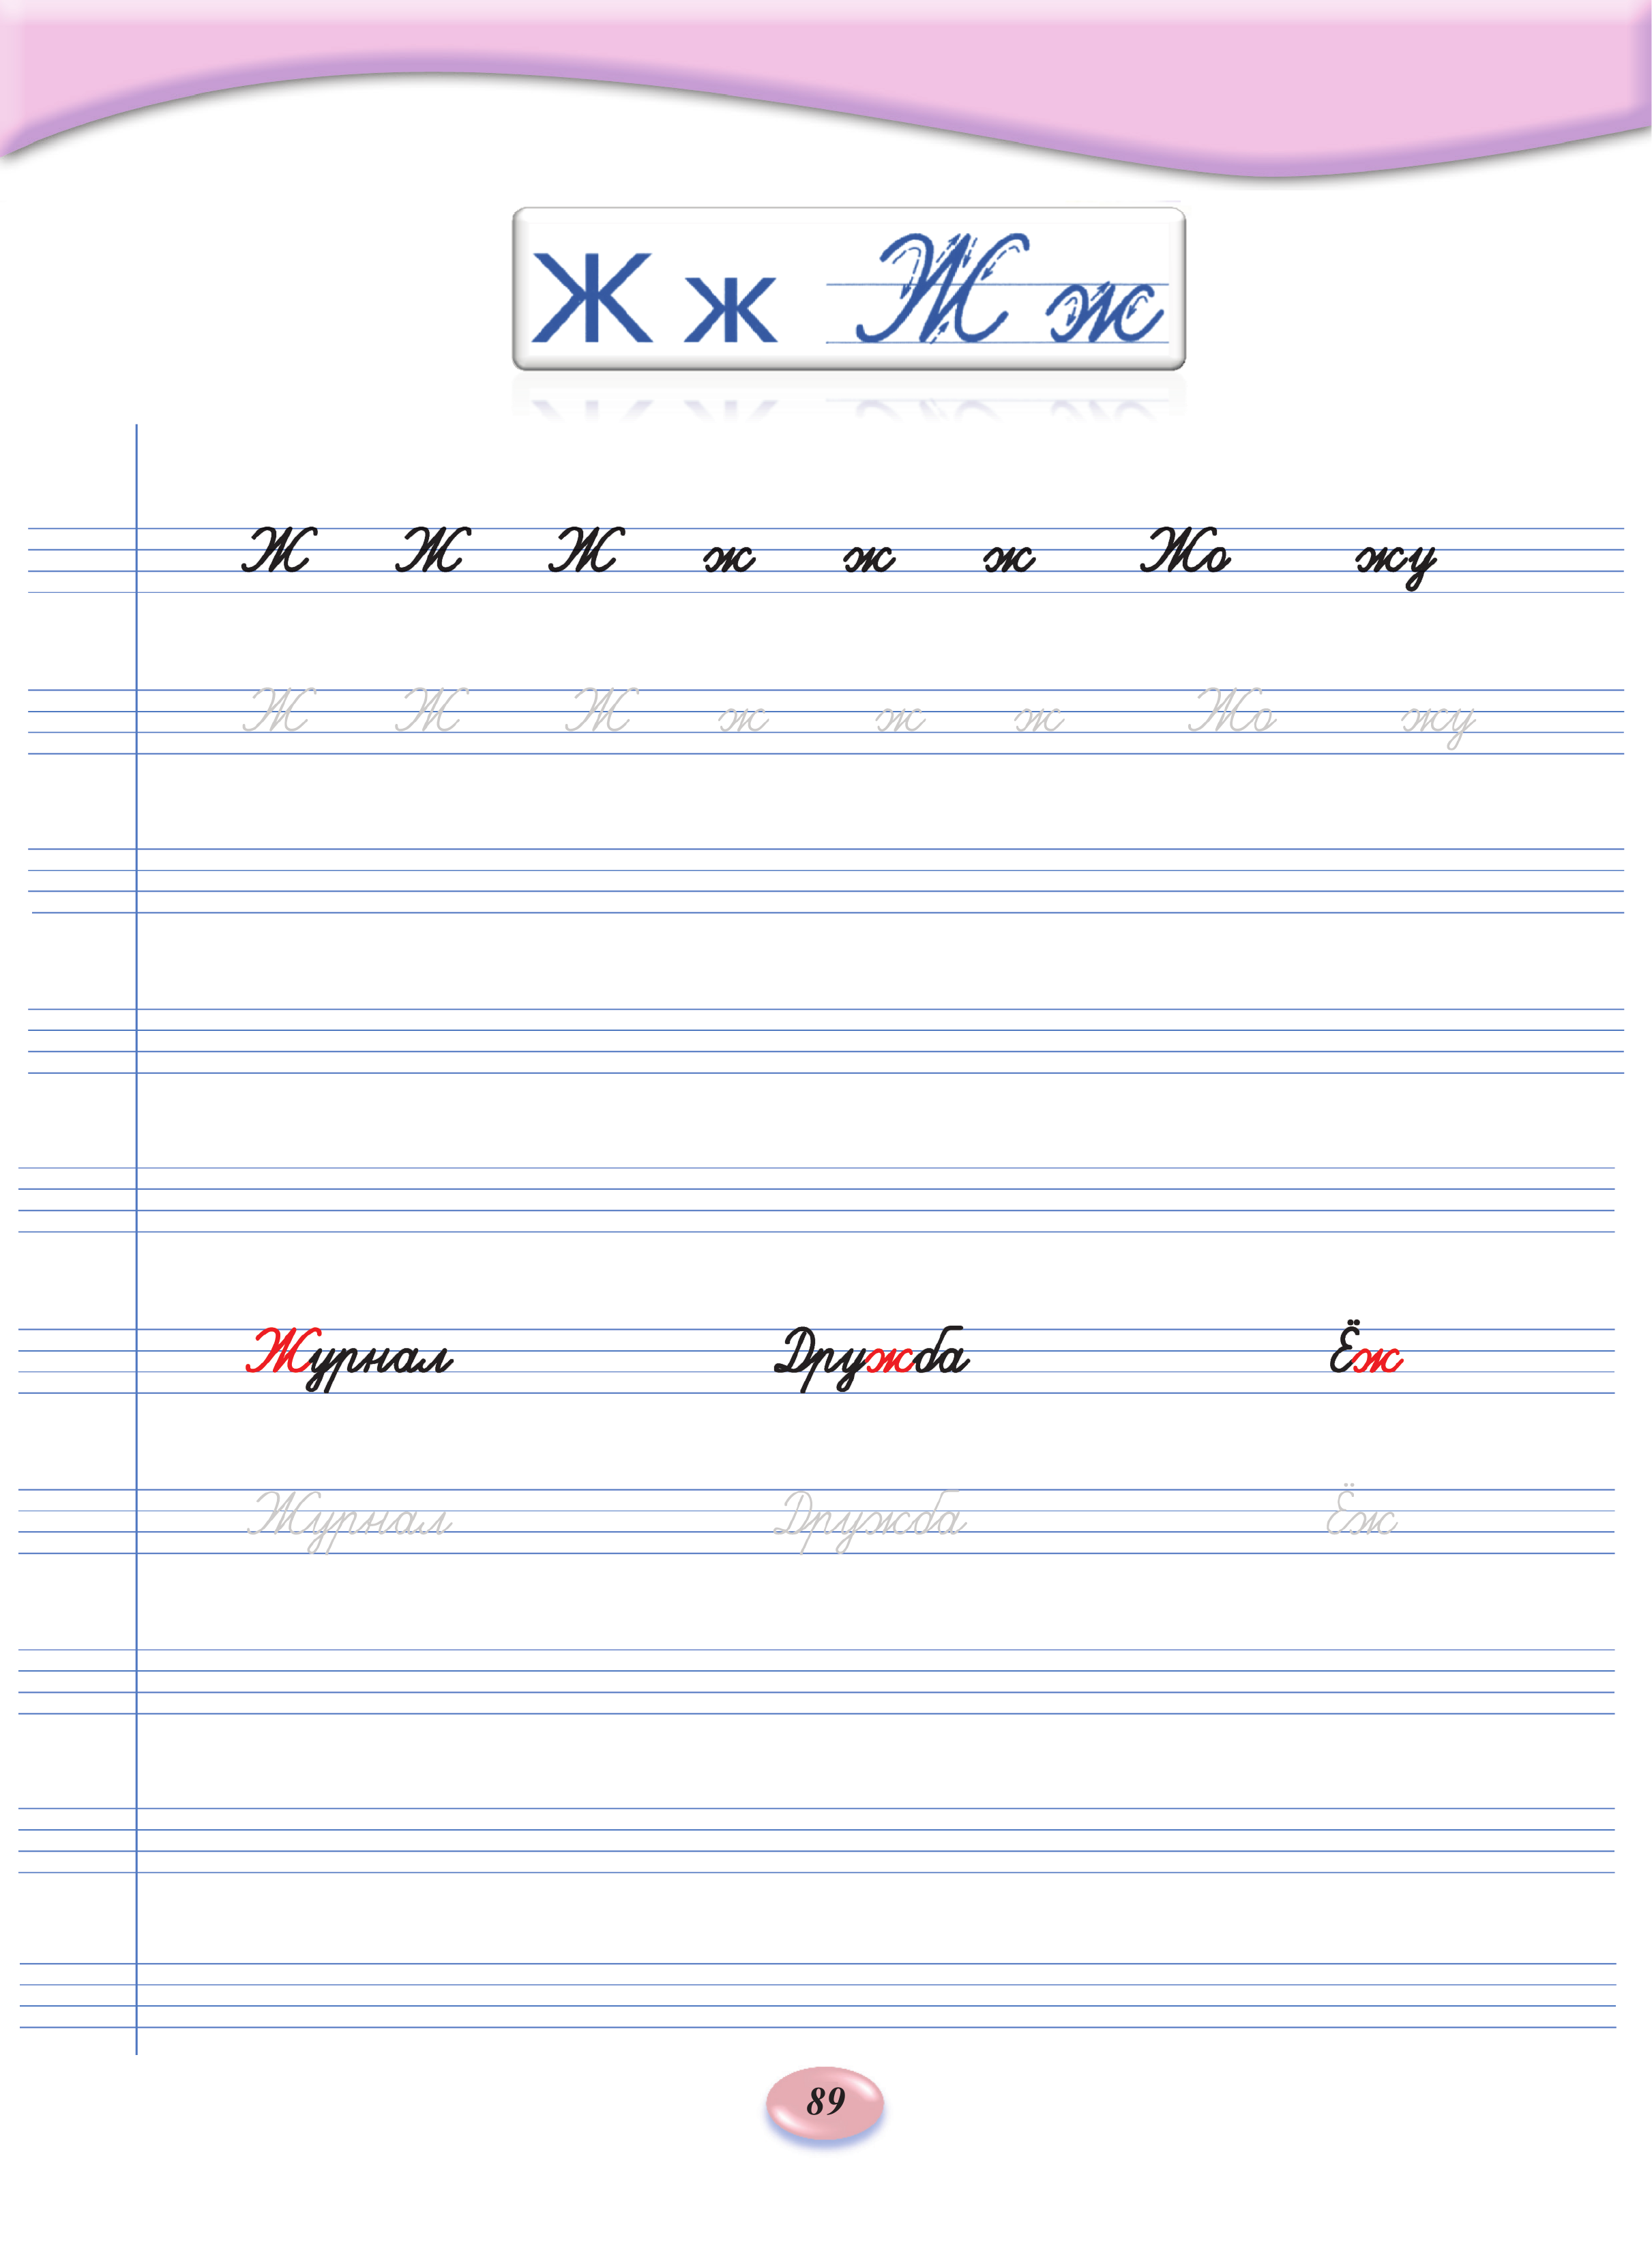 Ж ж Ж ж
Ж Ж Ж ж ж ж Жо жу
Ж Ж Ж ж ж ж Жо жу
Журнал Дружба Ёж
Журнал Дружба Ёж
89